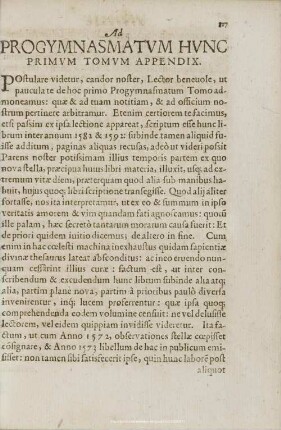 817
Ad
PROGYMNASMATVM HVNC
PRIMVM TOMVM APPENDIX.
POstulare videtur, candor noster, Lector beneuole, ut
paucula te de hoc primo Progymnasmatum Tomo ad-
moneamus: quæ & ad tuam notitiam, & ad officium no-
strum pertinere arbitramur. Etenim certiorem te facimus,
etsi passim ex ipsa lectione appareat, scriptum esse hunc li-
brum inter annum 1582 & 1592: subinde tamen aliquid fu-
isse additum, paginas aliquas recusas, adeò ut videri possit
Parens noster potissimam illius temporis partem ex quo
nova stella, præcipua huius libri materia, illuxit, usq; ad ex-
tremum vitæ diem, præterquam quod alia sub manibus ha-
buit, hujus quoq; libri scriptione transegisse. Quod alij aliter
fortasse, nos ita interpretamur, ut ex eo & summum in ipso
veritatis amorem & vim quandam fati agnoscamus: quòcũ
ille palam, hæc secretò tantarum morarum causa fuerit: Et
de priori quidem initio dicemus, de altero in fine. Cum
enim in hac cœlesti machina inexhaustus quidam sapientiæ
divinæ thesaurus lateat absconditus: ac in eo eruendo nun-
quam cessârint illius curæ: factum est, ut inter con-
scribendum & excudendum hunc librum subinde alia atq;
alia, partim planè nova, partim à prioribus paulò diversa
invenirentur, inq; lucem proferrentur: quæ ipsa quoq;
comprehendenda eodem volumine censuit: ne vel delusisse
lectorem, vel eidem quippiam invidisse videretur. Ita fa-
ctum, ut cum Anno 1572, observationes stellæ cœpisset
cõsignare, & Anno 1573 libellum de hac in publicum emi-
sisset: non tamen sibi satisfecerit ipse, quin huic laborẽ post
aliquot